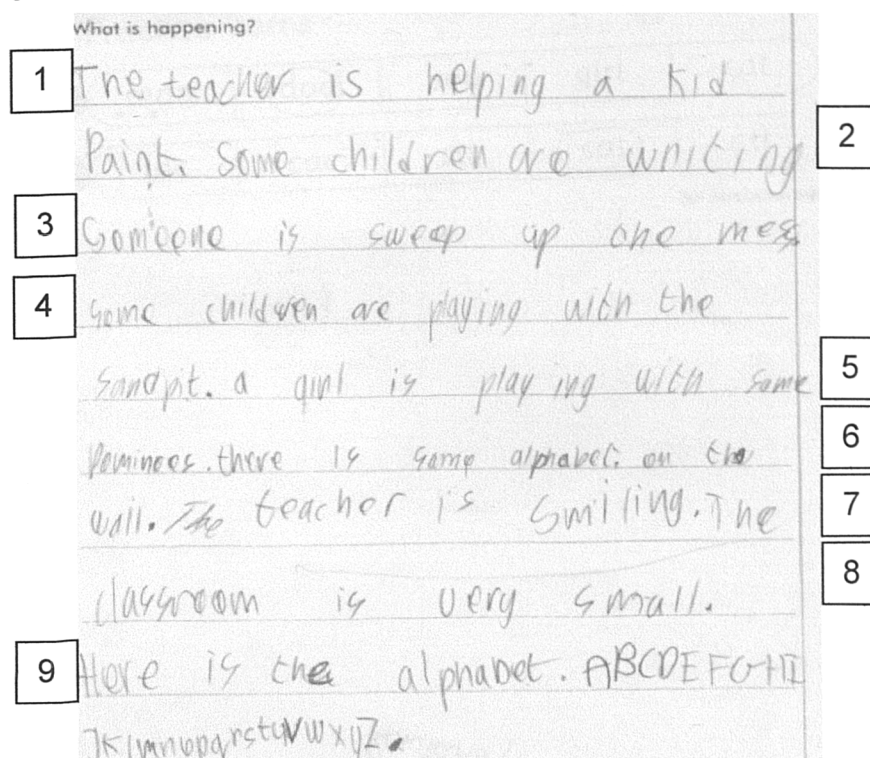 What is happening?
1 The teacher is helping a kid
Paint. Some children are writing 2
3 Someone is sweep up one mess
4 some children are playing with the
Sandpit. a girl is playing with some 5
Dominoes. there is some alphabet. on the 6
wall. The teacher is smiling. The 7
8
classroom is very small.
9 Here is the alphabet. ABCDEFGHI
JKlmnopqrstuvwxyZ.